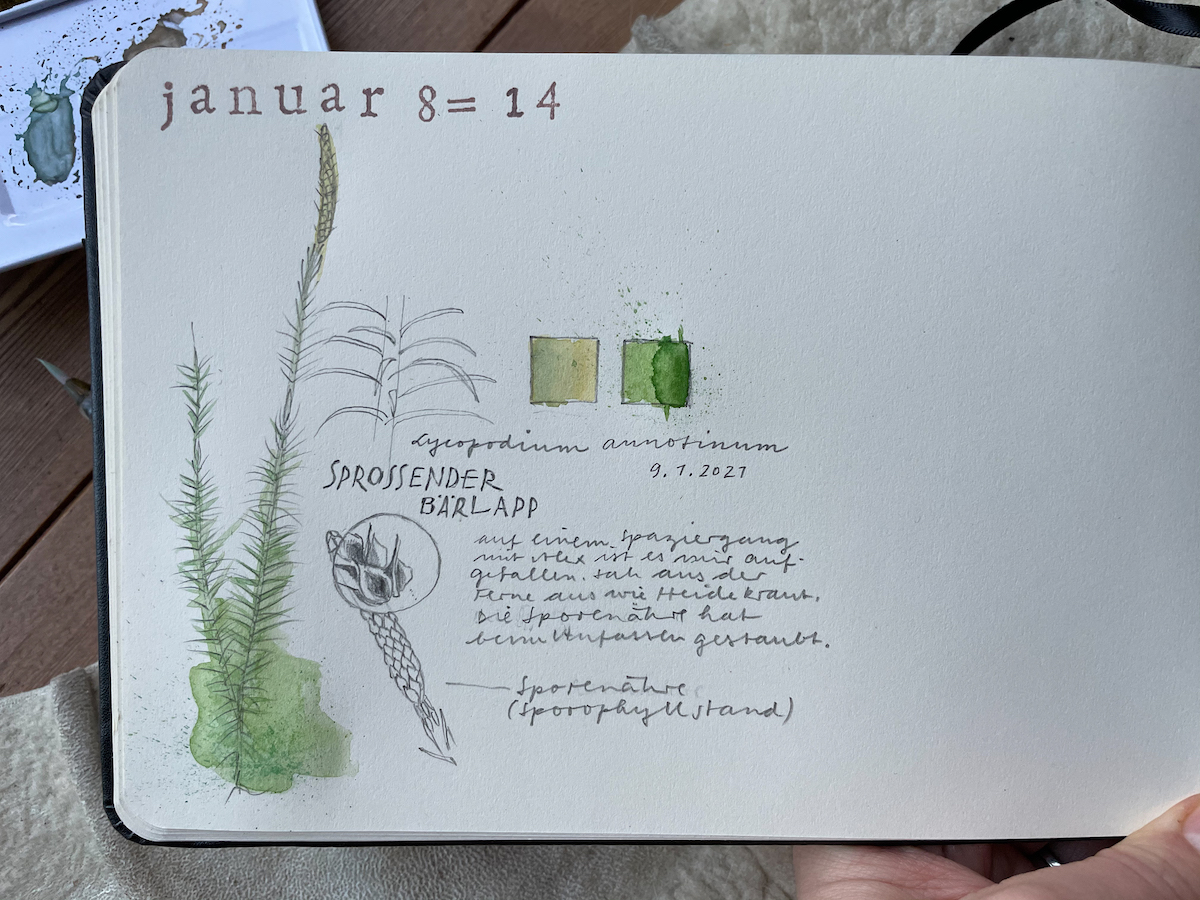 januar 8= 14
Lycopodium annotinum
9.1.2021
SPROSSENDER
BÄRLAPP
auf einem Spaziergang
mit Alex ist es mir auf-
gefallen. Sah aus der
Ferne aus wie Heidekraut.
Die Sporenähre hat
beim Anfassen gestaubt.
Sporenähre
(Sporophyllstand)